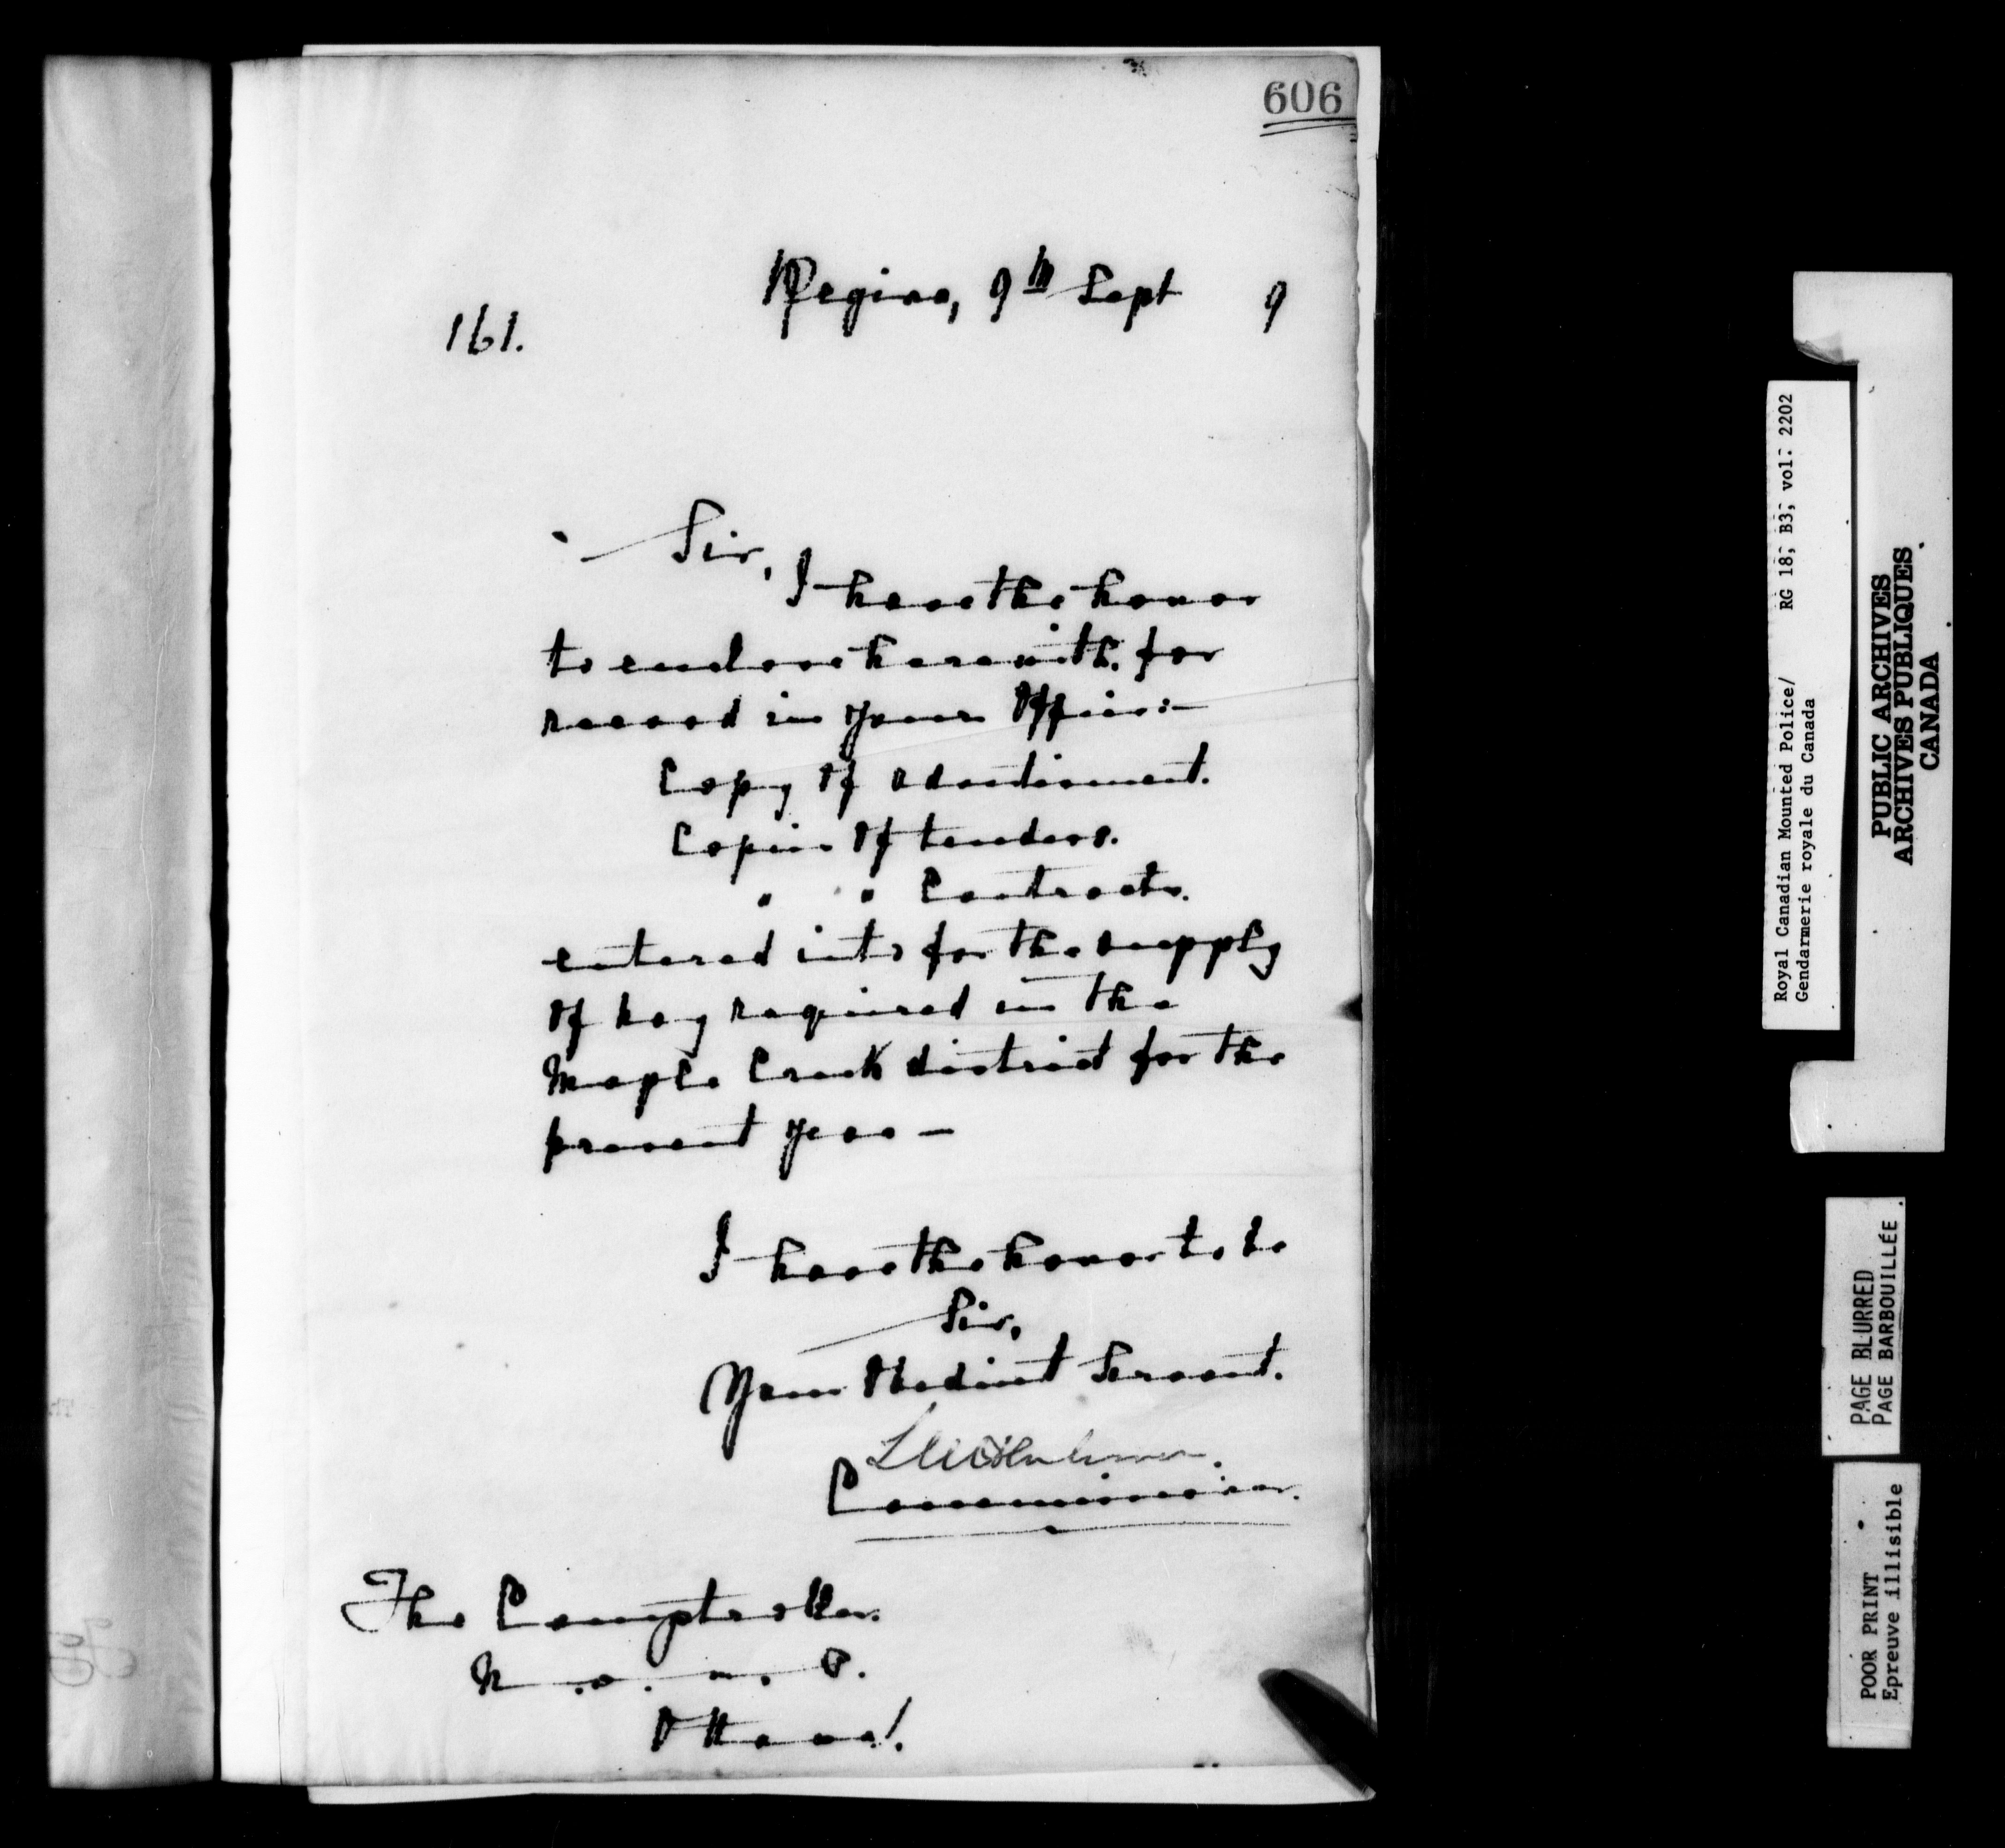 606
Regina, 9th Sept 9
161.
Sir,
I have the honor
to enclose herewith, for
record in your Office:—
Copy of advertisement.
Copies of tenders.
" " Contracts.
entered into for the supply
of hay required in the
Maple Creek district for the
present year —
I have the honor to be
Sir,
Your Obedient Servant.
Commissioner.
The Comptroller.
N. W. M. P.
Ottawa.
Royal Canadian Mounted Police/ RG 18, B3, vol. 2202
Gendarmerie royale du Canada
PUBLIC ARCHIVES
ARCHIVES PUBLIQUES
CANADA
PAGE BLURRED
PAGE BARBOUILLÉE
POOR PRINT
Epreuve illisible